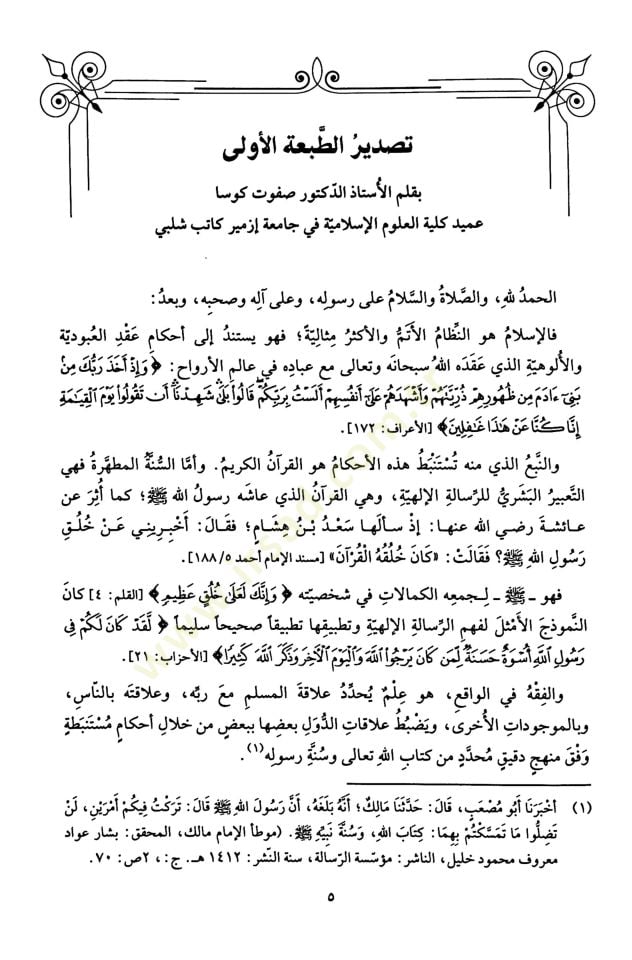 تصديرُ الطَّبعة الأولى
بقلم الأُستاذ الدّكتور صفوت كوسا
عميد كلية العلوم الإسلاميّة في جامعة إزمير كاتب شلبي
الحمدُ للهِ، والصَّلاةُ والسَّلامُ على رسولِه، وعلى آلِه وصحبِه، وبعدُ:
فالإسلامُ هو النِّظامُ الأتَمُّ والأكثرُ مِثاليّةً؛ فهو يستندُ إلى أحكامِ عَقْدِ العبوديّةِ
والأُلوهيّةِ الذي عَقَدَه اللهُ سبحانَه وتعالى مع عبادِه في عالمِ الأرواح: ﴿وَإِذْ أَخَذَ رَبُّكَ مِنْ
بَنِي ءَادَمَ مِن ظُهُورِهِمْ ذُرِّيَّتَهُمْ وَأَشْهَدَهُمْ عَلَىٰ أَنفُسِهِمْ أَلَسْتُ بِرَبِّكُمْ قَالُوا بَلَىٰ شَهِدْنَا أَن تَقُولُوا يَوْمَ الْقِيَامَةِ
إِنَّا كُنَّا عَنْ هَٰذَا غَافِلِينَ﴾ [الأعراف: ١٧٢].
والنَّبعُ الذي منه تُسْتَنْبَطُ هذه الأحكامُ هو القرآنُ الكريمُ. وأمَّا السُّنَّةُ المطهَّرةُ فهي
التَّعبيرُ البَشَريُّ للرِّسالةِ الإلهيّةِ، وهي القرآنُ الذي عاشَه رسولُ الله ﷺ؛ كما أُثِرَ عن
عائشةَ رضي الله عنها: إذ سألَها سَعْدُ بْنُ هِشَامٍ؛ فقالَ: أَخْبِرِيني عَنْ خُلُقِ
رَسُولِ اللهِ ﷺ؟ فَقَالَتْ: «كَانَ خُلُقُهُ الْقُرْآنَ» [مسند الإمام أحمد ١٨٨/٥].
فهو ـ ﷺ ـ لِـجمعِه الكمالاتِ في شخصيّته ﴿وَإِنَّكَ لَعَلَىٰ خُلُقٍ عَظِيمٍ﴾ [القلم: ٤] كانَ
النَّموذجَ الأمْثلَ لفهمِ الرِّسالةِ الإلهيّةِ وتطبيقِها تطبيقاً صحيحاً سليماً ﴿لَّقَدْ كَانَ لَكُمْ فِي
رَسُولِ اللَّهِ أُسْوَةٌ حَسَنَةٌ لِّمَن كَانَ يَرْجُوا اللَّهَ وَالْيَوْمَ الْآخِرَ وَذَكَرَ اللَّهَ كَثِيرًا﴾ [الأحزاب: ٢١].
والفِقْهُ في الواقعِ، هو عِلْمٌ يُحدِّدُ علاقةَ المسلمِ معَ ربِّه، وعلاقتَه بالنّاسِ،
وبالموجوداتِ الأُخرى، ويَضْبُطُ علاقاتِ الدُّوَلِ بعضِها ببعضٍ من خلالِ أحكامٍ مُسْتَنبَطةٍ
وَفْقَ منهجٍ دقيقٍ مُحدَّدٍ من كتابِ اللهِ تعالى وسُنَّةِ رسولِه(١).
(١) أخْبَرَنَا أَبُو مُصْعَبٍ، قَالَ: حَدَّثَنَا مَالِكٌ؛ أَنَّهُ بَلَغَهُ، أَنَّ رَسُولَ اللهِ ﷺ قَالَ: تَرَكْتُ فِيكُمْ أَمْرَيْنِ، لَنْ
تَضِلُّوا مَا تَمَسَّكْتُمْ بِهِمَا: كِتَابَ اللهِ، وَسُنَّةَ نَبِيِّهِ ﷺ. (موطأ الإمام مالك، المحقق: بشار عواد
معروف محمود خليل، الناشر: مؤسّسة الرّسالة، سنة النّشر: ١٤١٢ هـ. ج: ،٢ ص: ٧٠.
٥